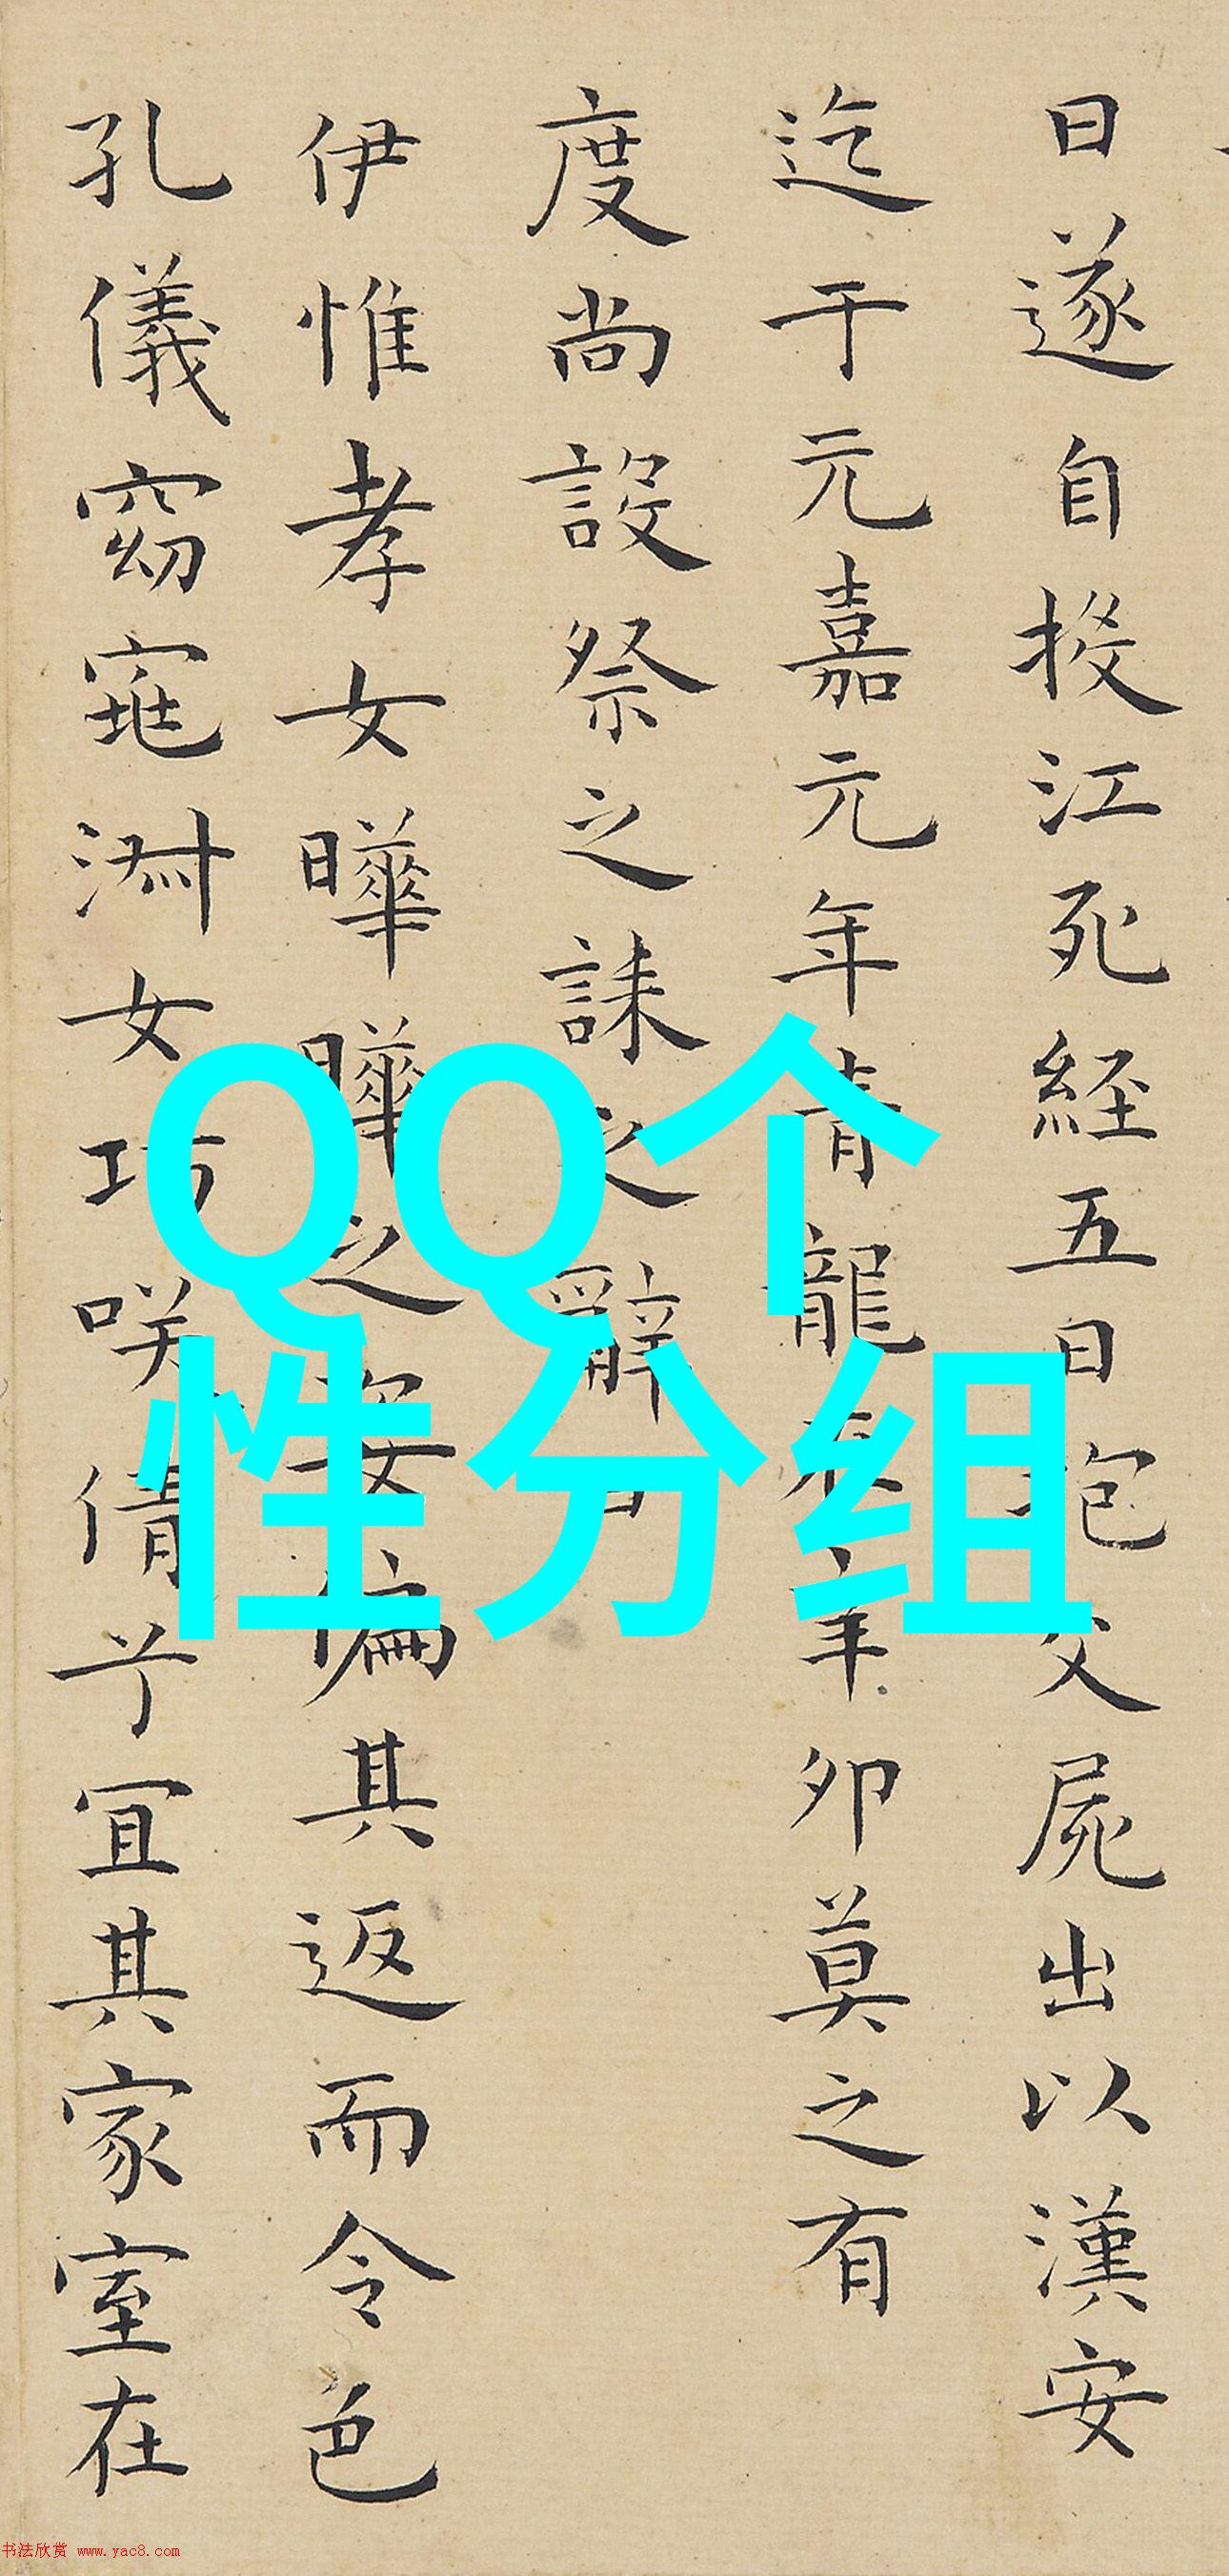 日遂自投江死経五日抱父屍出以漢安
迄于元嘉元年青龍在辛卯莫之有
度尚設祭之誄之辭曰
伊惟孝女曄曄之姿偏其返而令色
孔儀窈窕淑女巧咲倩兮宜其家室在
QQ个
性分组
书法欣赏 www.yac8.com